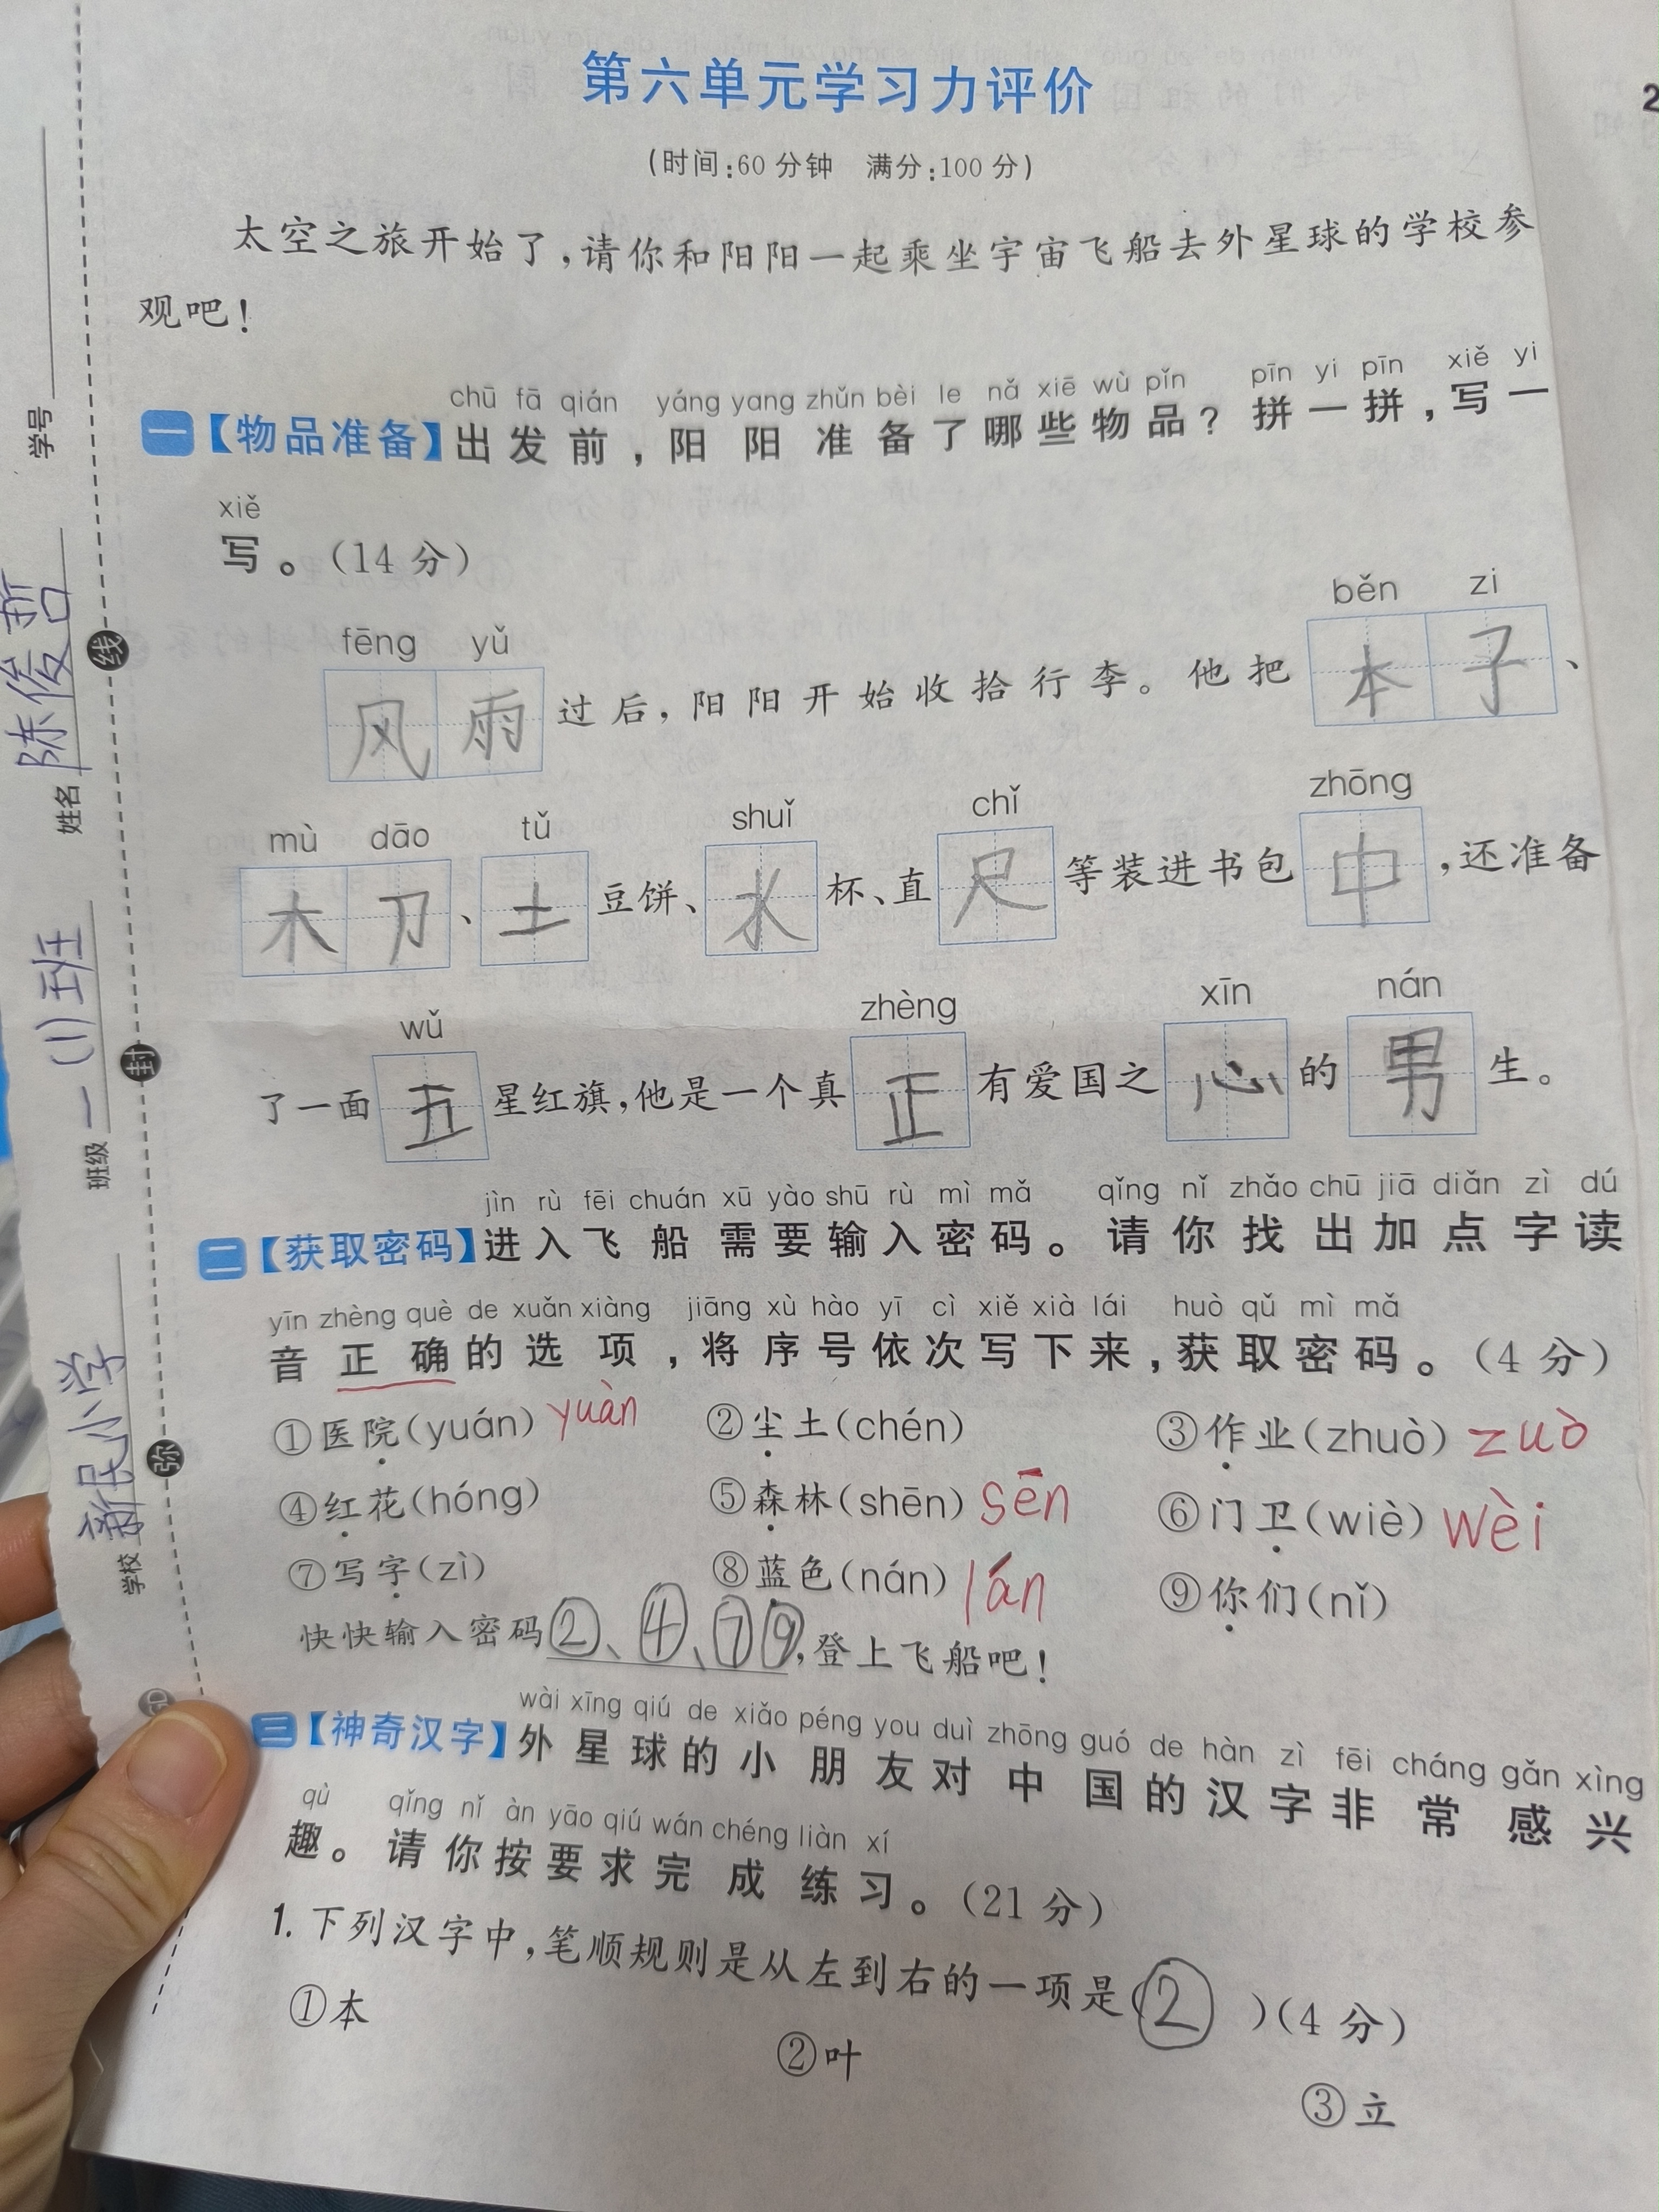 第六单元学习力评价
(时间:60分钟 满分:100分)
太空之旅开始了,请你和阳阳一起乘坐宇宙飞船去外星球的学校参
观吧!
chū fā qián yáng yang zhǔn bèi le nǎ xiē wù pǐn pīn yi pīn xiě yi
一【物品准备】出发前,阳阳准备了哪些物品?拼一拼,写一
xiě
写。(14分)
fēng yǔ běn zi
风雨过后,阳阳开始收拾行李。他把本子、
mù dāo tǔ shuǐ chǐ zhōng
木刀、土豆饼、水杯、直尺等装进书包中,还准备
wǔ zhèng xīn nán
了一面五星红旗,他是一个真正有爱国之心的男生。
jìn rù fēi chuán xū yào shū rù mì mǎ qǐng nǐ zhǎo chū jiā diǎn zì dú
二【获取密码】进入飞船需要输入密码。请你找出加点字读
yīn zhèng què de xuǎn xiàng jiāng xù hào yī cì xiě xià lái huò qǔ mì mǎ
音正确的选项,将序号依次写下来,获取密码。(4分)
①医院(yuán) yuàn ②尘土(chén) ③作业(zhuò) zuò
④红花(hóng) ⑤森林(shēn) sēn ⑥门卫(wiè) wèi
⑦写字(zì) ⑧蓝色(nán) lán ⑨你们(nǐ)
快快输入密码②、④、⑦⑨,登上飞船吧!
wài xīng qiú de xiǎo péng you duì zhōng guó de hàn zì fēi cháng gǎn xìng
三【神奇汉字】外星球的小朋友对中国的汉字非常感兴
qù qǐng nǐ àn yāo qiú wán chéng liàn xí
趣。请你按要求完成练习。(21分)
1.下列汉字中,笔顺规则是从左到右的一项是(②)(4分)
①本 ②叶 ③立
学号
姓名 陈俊哲
班级 一(1)班
学校 新民小学
线
封
弥
2